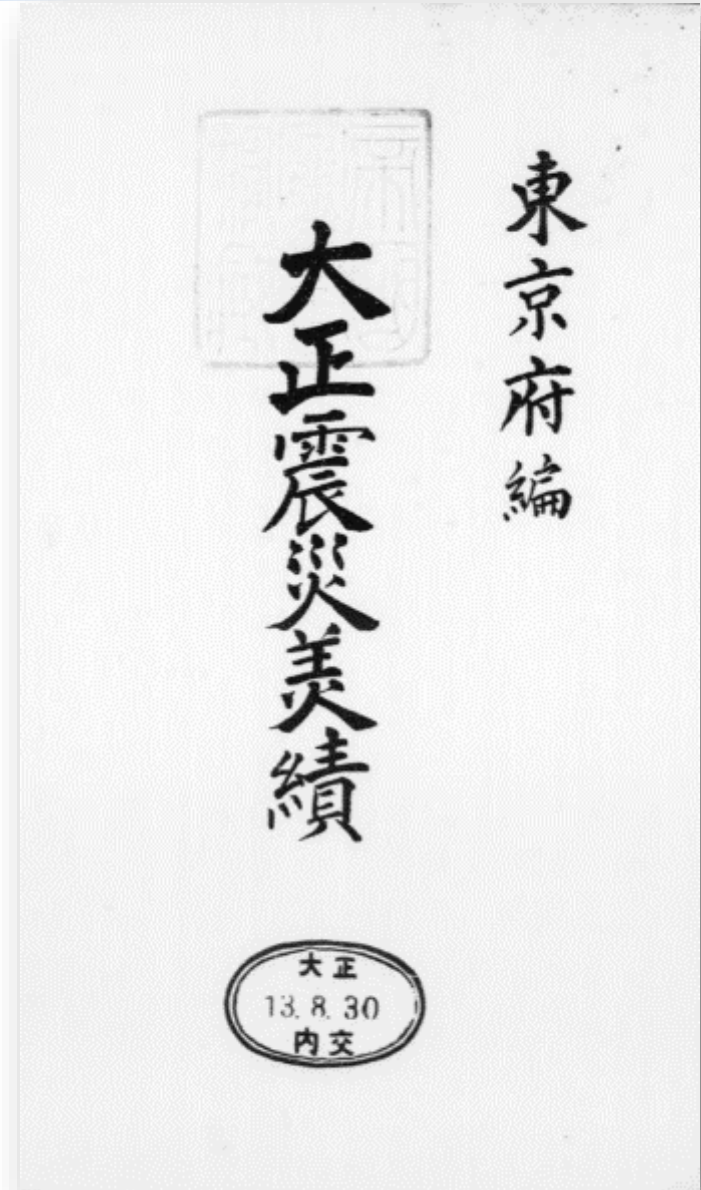 東京府編
大正震災美績
大正
13.8.30
内交